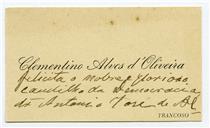 Clementino Alves d'Oliveira
felicita o nobre e glorioso
caudilho da Democracia
dr. Antonio José de Al
TRANCOSO